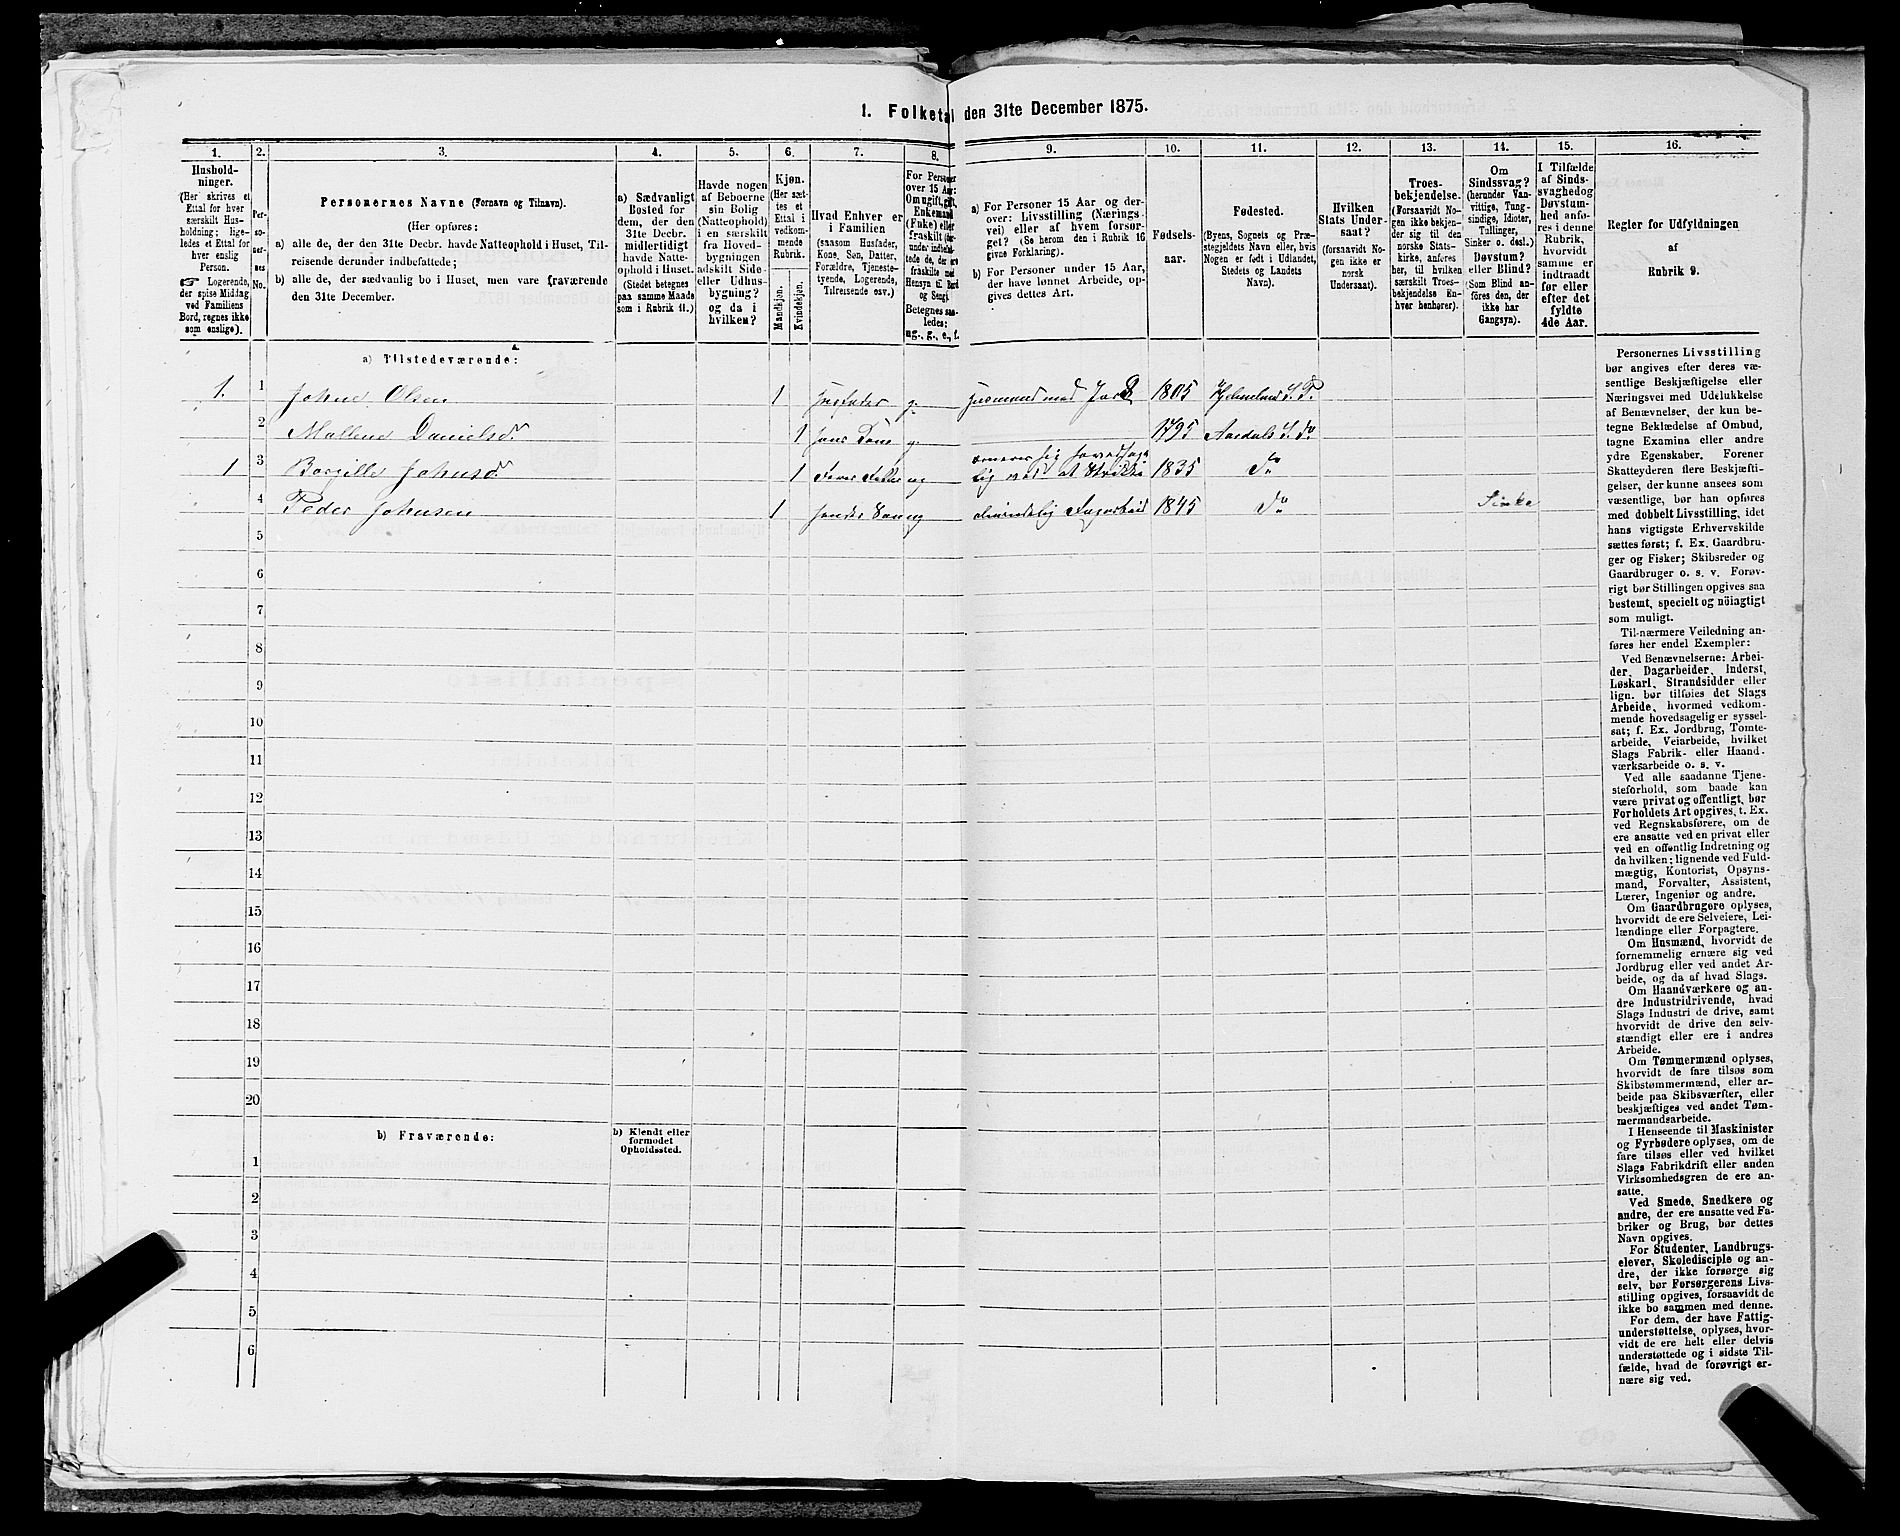 1. Folketal den 31te December 1875.
1. 2. 3. 4. 5. 6. 7. 8. 9. 10. 11. 12. 13. 14. 15. 16.
Hushold-
ninger.
(Her skrives et
Ettal for hver
særskilt Hus-
holdning; lige-
ledes et Ettal for
hver enslig
Person.
☛ Logerende,
der spise Middag
ved Familiens
Bord, regnes ikke
som enslige).
Per-
so-
ner-
nes
No.
Personernes Navne (Fornavn og Tilnavn).
(Her opføres:
a) alle de, der den 31te Decbr. havde Natteophold i Huset, Til-
reisende derunder indbefattede;
b) alle de, der sædvanlig bo i Huset, men vare fraværende
den 31te December.
a) Sædvanligt
Bosted for
dem, der den
31te Decbr.
midlertidigt
havde Natte-
ophold i Huset.
(Stedet betegnes
paa samme Maade
som i Rubrik 11.)
Havde nogen
af Beboerne
sin Bolig
(Natteophold)
i en særskilt
fra Hoved-
bygningen
adskilt Side-
eller Udhus-
bygning?
og da i
hvilken?
Kjøn.
(Her sæt-
tes et
Ettal i
vedkom-
mende
Rubrik.
Mandkjøn.
Kvindekjøn.
Hvad Enhver er
i Familien
(saasom Husfader,
Kone, Søn, Datter,
Forældre, Tjeneste-
tyende, Logerende,
Tilreisende osv.)
For Personer
over 15 Aar:
Om ugift, gift,
Enkemand
(Enke) eller
fraskilt (her-
under indbefat-
tede de, der ere
fraskilte med
Hensyn til Bord
og Seng).
Betegnes saa-
ledes:
ug., g., e., f.
a) For Personer 15 Aar og der-
over: Livsstilling (Nærings-
vei) eller af hvem forsør-
get? (Se herom den i Rubrik 16
givne Forklaring).
b) For Personer under 15 Aar,
der have lønnet Arbeide, op-
gives dettes Art.
Fødsels-
aar.
Fødested.
(Byens, Sognets og Præ-
stegjeldets Navn eller, hvis
Nogen er født i Udlandet,
Stedets og Landets
Navn).
Hvilken
Stats Under-
saat?
(forsaavidt No-
gen ikke er
norsk
Undersaat).
Troes-
bekjendelse.
(Forsaavidt No-
gen ikke bekjen-
der sig til den
norske Stats-
kirke, anføres
her, til hvilken
særskilt Troes-
bekjendelse En-
hver henhører).
Om
Sindssvag?
(herunder Van-
vittige, Tung-
sindige, Idioter,
Tullinger,
Sinker o. desl.)
Døvstum?
eller Blind?
(Som Blind an-
føres den, der
ikke har
Gangsyn).
I Tilfælde
af Sinds-
svaghed og
Døvstum-
hed anfø-
res i denne
Rubrik,
hvorvidt
samme er
indtraadt
før eller
efter det
fyldte
4de Aar.
Regler for Udfyldningen
af
Rubrik 9.
a) Tilstedeværende:
1. 1 Johne Olsen 1 Husfader g. Husmand med Jord 1805 Hjelmeland S. P.
2 Mallene Danielsd. 1 hans Kone g. 1795 Aardals S. do
ernærer sig hovedsage
1 3 Borgille Johnsd. 1 ug lig ved at Strikke 1835 do
4 Peder Johnsen 1 ug 1845 do Sinke
5
6
7
8
9
10
11
12
13
14
15
16
17
18
19
20
b) Fraværende:
b) Kjendt eller
formodet
Opholdssted.
1
2
3
4
5
6
Personernes Livsstilling
bør angives efter deres væ-
sentlige Beskjæftigelse eller
Næringsvei med Udelukkelse
af Benævnelser, der kun be-
tegne Beklædelse af Ombud,
tagne Examina eller andre
ydre Egenskaber. Forener
Skatteyderen flere Beskjæfti-
gelser, der kunne ansees som
væsentlige, bør han opføres
med dobbelt Livsstilling, idet
hans vigtigste Erhvervskilde
sættes først; f. Ex. Gaardbru-
ger og Fisker; Skibsreder og
Gaardbruger o. s. v. Forøv-
rigt bør Stillingen opgives saa
bestemt, specielt og nöiagtigt
som muligt.
Til nærmere Veiledning an-
føres her endel Exempler:
Ved Benævnelserne: Arbei-
der, Dagarbeider, Inderst,
Løskarl, Strandsidder eller
lign. bør tilføies det Slags
Arbeide, hvormed vedkom-
mende hovedsagelig er syssel-
sat; f. Ex. Jordbrug, Tomte-
arbeide, Veiarbeide, hvilket
Slags Fabrik- eller Haand-
værksarbeide o. s. v.
Ved alle saadanne Tjene-
steforhold, som baade kan
være privat og offentligt, bør
Forholdets Art opgives, t. Ex.
ved Regnskabsførere, om de
ere ansatte ved en privat eller
ved en offentlig Indretning og
da hvilken; lignende ved Fuld-
mægtig, Kontorist, Opsyns-
mand, Forvalter, Assistent,
Lærer, Ingeniør og andre.
Om Gaardbrugere oplyses,
hvorvidt de ere Selveiere, Lei-
lændinge eller Forpagtere.
Om Husmænd, hvorvidt de
fornemmelig ernære sig ved
Jordbrug eller ved andet Ar-
beide, og da af hvad Slags.
Om Haandværkere og an-
dre Industridrivende, hvad
Slags Industri de drive, samt
hvorvidt de drive den selv-
stændigt eller ere i andres
Arbeide.
Om Tømmermænd oplyses,
hvorvidt de fare tilsøs som
Skibstømmermænd, eller ar-
beide paa Skibsværfter, eller
beskjæftiges ved andet Tøm-
mermandsarbeide.
I Henseende til Maskinister
og Fyrbødere oplyses, om de
fare tilsøs eller ved hvilket
Slags Fabrikdrift eller anden
Virksomhedsgren de ere an-
satte.
Ved Smede, Snedkere og
andre, der ere ansatte ved Fa-
briker og Brug, bør dettes
Navn opgives.
For Studenter, Landbrugs-
elever, Skoledisciple og an-
dre, der ikke forsørge sig
selv, bør Forsørgerens Livs-
stilling opgives, forsaavidt de
ikke bo sammen med denne.
For dem, der have Fattig-
understøttelse, oplyses, hvor-
vidt de ere helt eller delvis
understøttede og i sidste Til-
fælde, hvad de forøvrigt er-
nære sig ved.